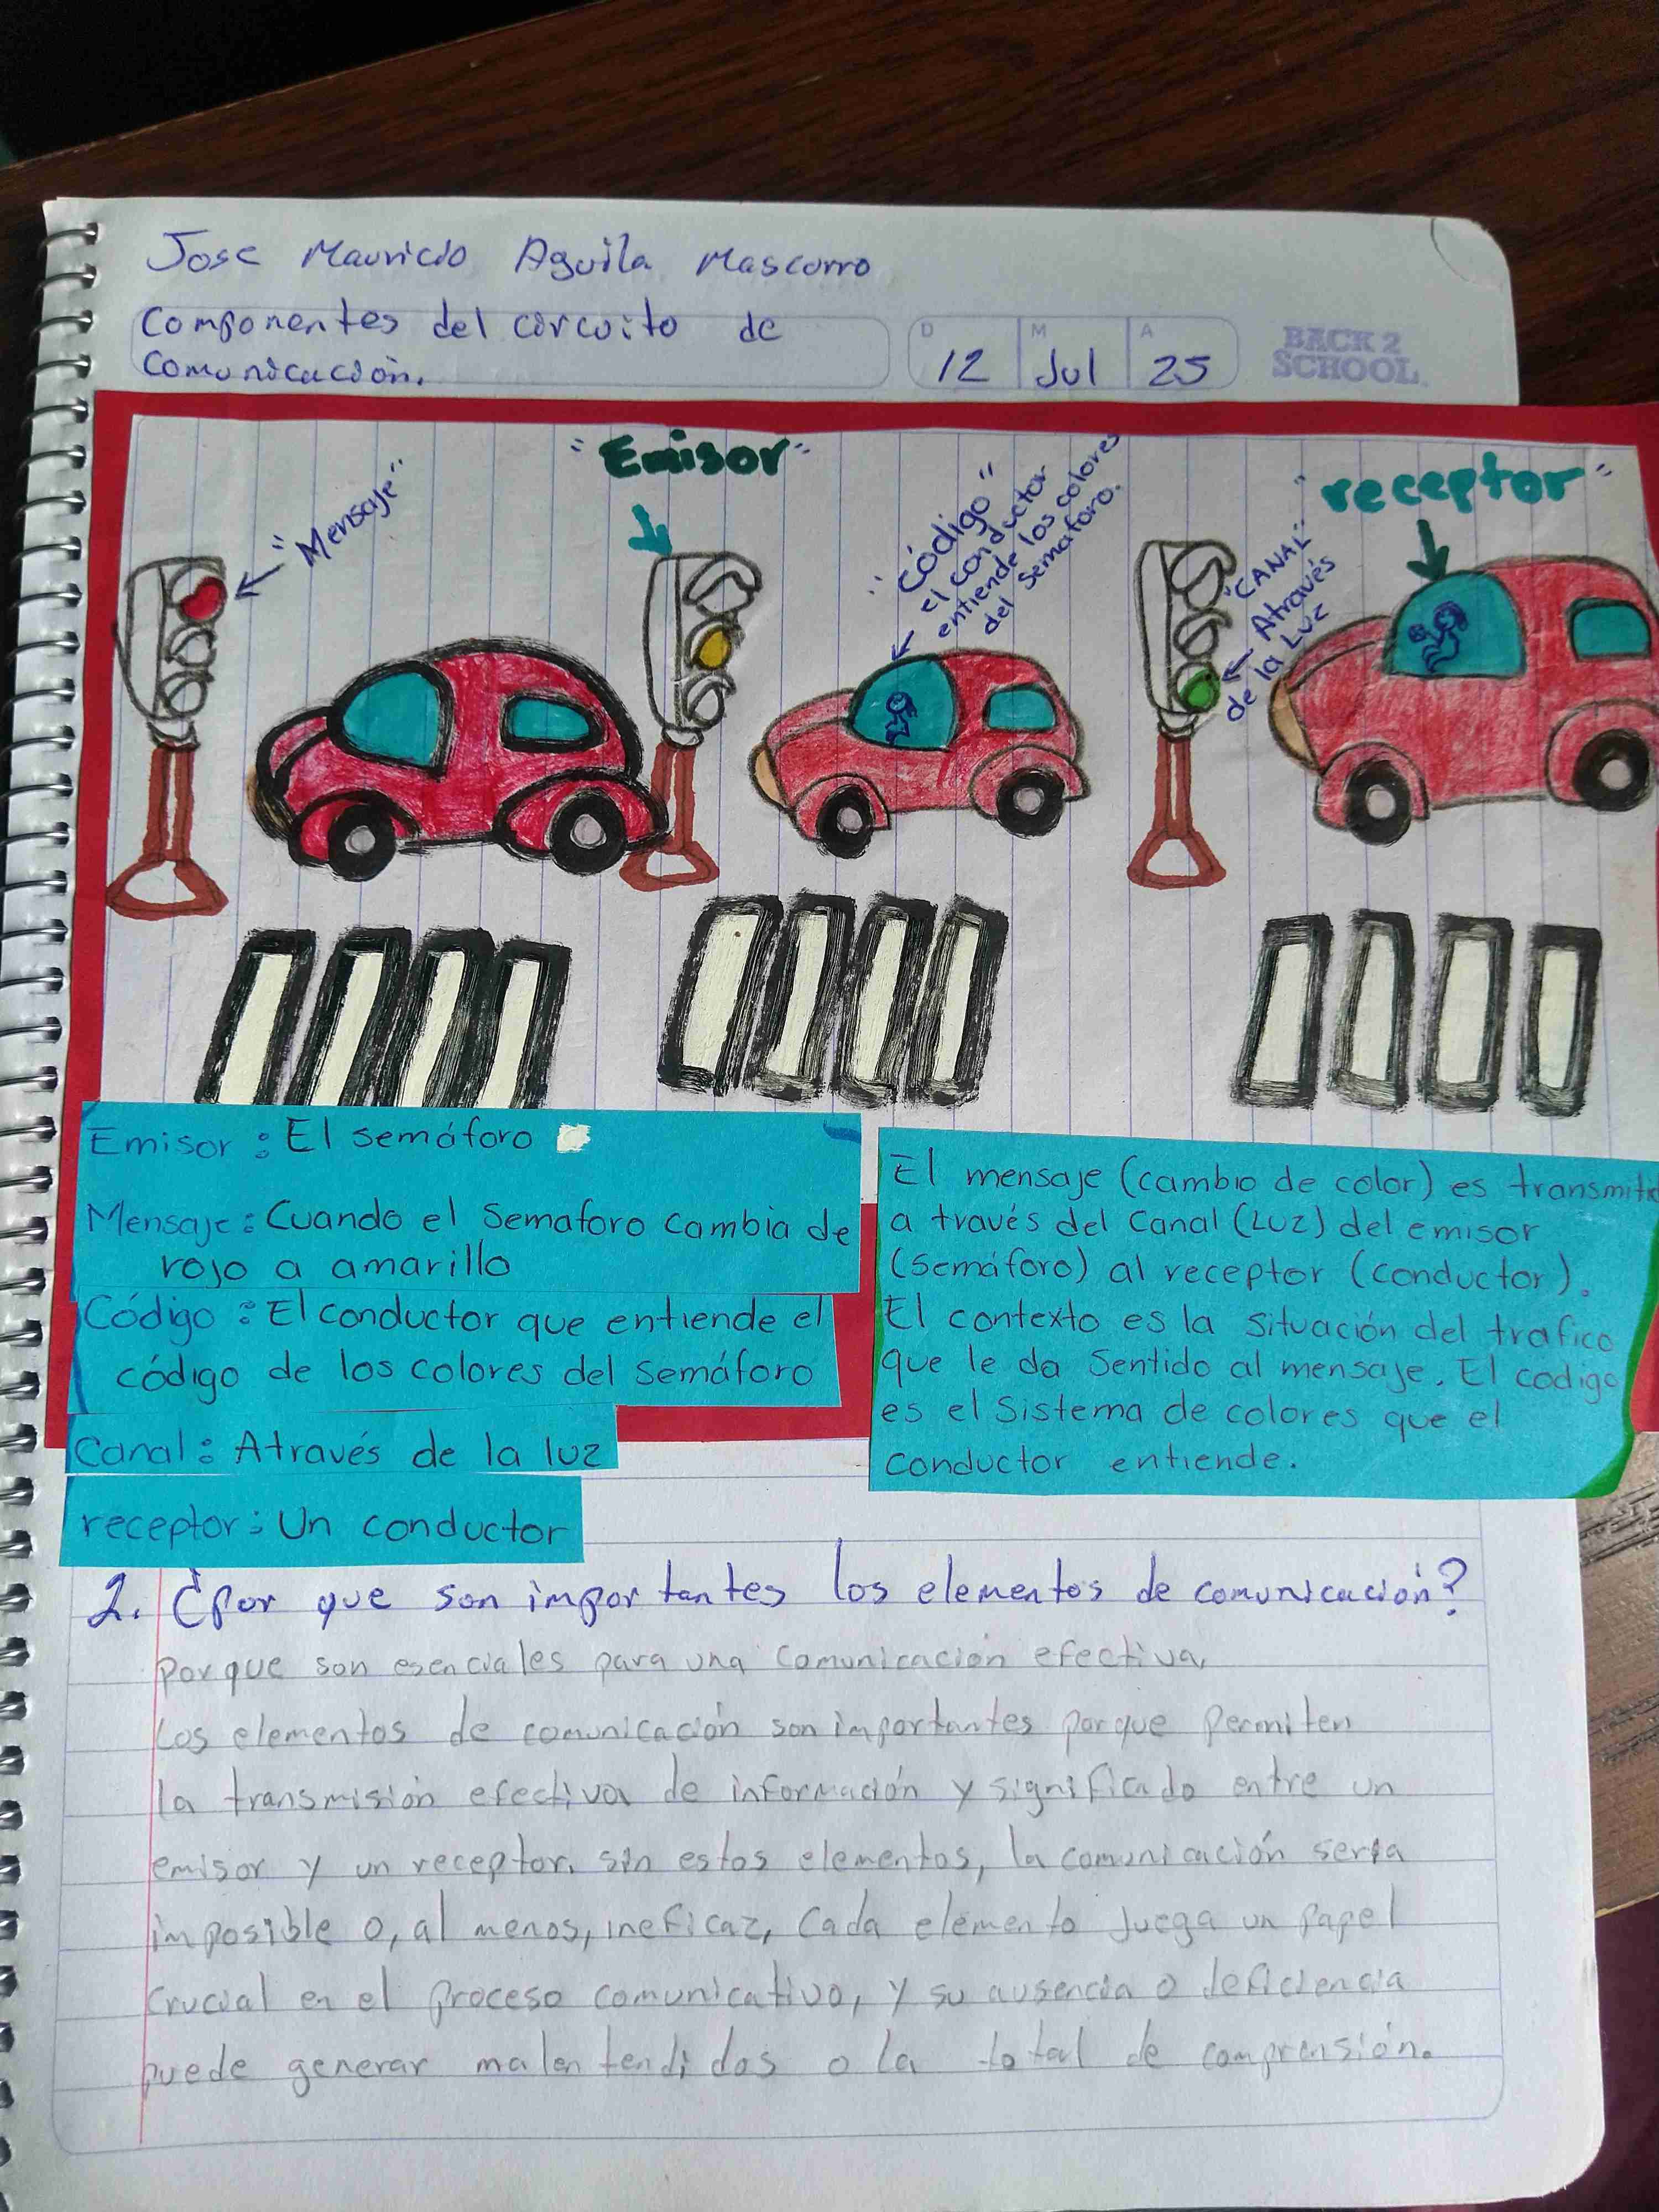 Jose Mauricio Aguila Mascorro
Componentes del circuito de
comunicación.
D M A
12 Jul 25
BACK 2
SCHOOL
"Mensaje"
"Emisor"
"código"
el conductor
entiende los colores
del semáforo.
"CANAL"
Através
de la Luz
"receptor"
Emisor: El semáforo
Mensaje: Cuando el Semaforo cambia de
rojo a amarillo
Código: El conductor que entiende el
código de los colores del semáforo
Canal: Através de la luz
receptor: Un conductor
El mensaje (cambio de color) es
a través del Canal (LUZ) del emisor
(Semáforo) al receptor (conductor).
El contexto es la situación del trafico
que le da Sentido al mensaje. El codigo
es el Sistema de colores que el
conductor entiende.
2. ¿Por que son importantes los elementos de comunicación?
porque son esenciales para una comunicación efectiva,
Los elementos de comunicación son importantes porque permiten
la transmisión efectiva de información y significado entre un
emisor y un receptor. sin estos elementos, la comunicación seria
imposible o, al menos, ineficaz, Cada elemento juega un papel
crucial en el proceso comunicativo, y su ausencia o deficiencia
puede generar malentendidos o la total de comprensión.